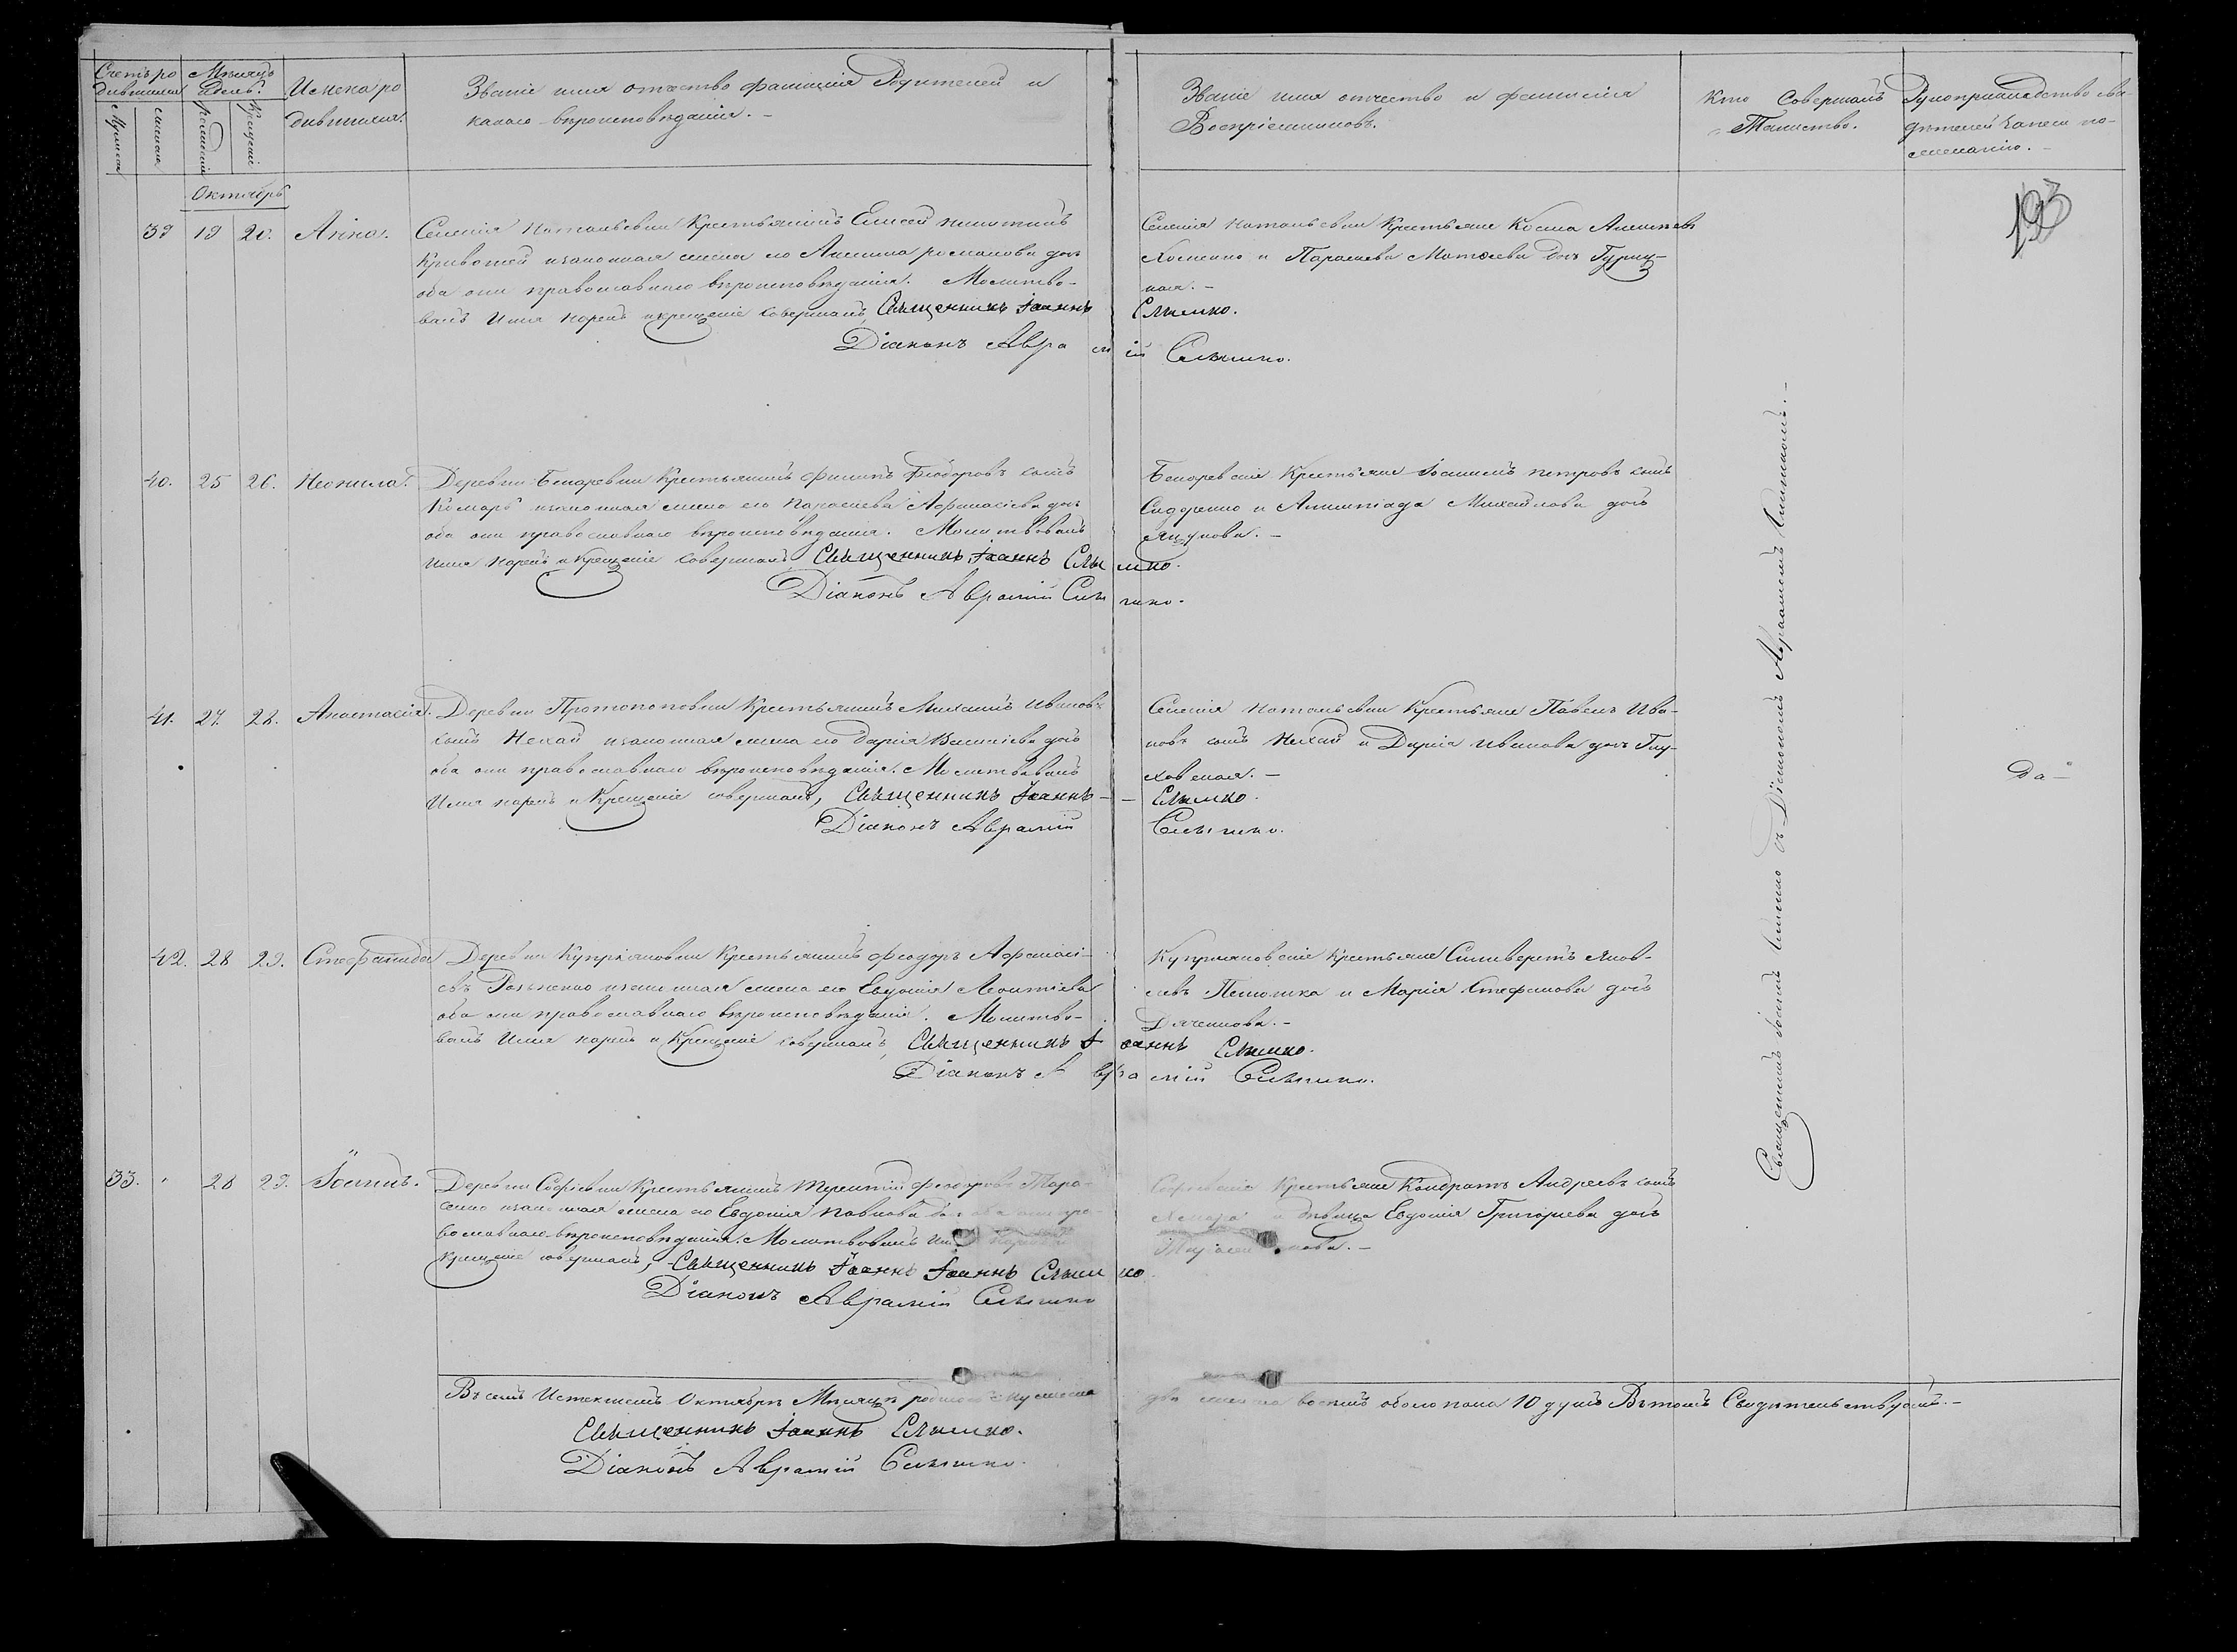 Счетъ ро
дившихся
Мѣсяцъ
и день.
Имена ро
дившихся.
Званіе имя отчество фамилія Родителей и
какого вѣроисповѣданія. –
Званіе имя отчество и фамилія
Воспріемниковъ.
Кто Совершалъ
Таинство.
Рукоприкладство сви-
дѣтелей записи по
желанію. –
Мужеска
женска
рожденія
Крещенія
Октябрь
193
39 19 20. Анна.
Селенія Натальевки Крестьянинъ Елисей Никитинъ
Кривошей изаконная жена его Акилина романова дочь
оба они православнаго вѣроисповѣданія. Молитво-
валъ Имя нарекъ икрещеніе совершалъ, Священникъ Іоаннъ Слымко.
Діаконъ Аврамій Слымко.
Селенія Натальевки Крестьяне Косма
Хоменко и Параскева Матвѣева дочь Гуриц-
кая. –
40. 25 26. Неонила.
Деревни Бекаревки Крестьянинъ Филипъ Феодоровъ сынъ
Комаръ изаконная жена его Параскева Афанасіева дочь
оба они православнаго вѣроисповѣданія. Молитвовалъ
Имя нарекъ и Крещеніе совершалъ, Священникъ Іоаннъ Слымко.
Діаконъ Аврамій Слымко.
Бекаревскіе Крестьяне Іоакимъ Петровъ сынъ
Сидоренко и Михайлова дочь
Яцукова. –
41. 27. 28. Анастасія.
Деревни Протопоповки Крестьянинъ Михаилъ Ивановъ
сынъ Нехай изаконная жена его Дарія Василіева дочь
оба они православнаго вѣроисповѣданія. Молитвовалъ
Имя нарекъ и Крещеніе совершалъ, Священникъ Іоаннъ – – Слымко.
Діаконъ Аврамій Слымко.
Селенія Натальевки Крестьяне Павелъ Ива-
новъ сынъ Нехай и Дарія Иванова дочь Глу-
ховская. –
Да –
42. 28 29. Стефанида
Деревни Купріяновки Крестьянинъ Феодоръ Афанасі-
евъ изаконная жена его Евдокія Леонтіева
оба они православнаго вѣроисповѣданія. Молитво-
валъ Имя нарекъ и Крещеніе совершалъ, Священникъ Іоаннъ Слымко.
Діаконъ Аврамій Слымко.
Купріяновскіе Крестьяне Селиверстъ Яков-
левъ и Марія Стефанова дочь
Дяченкова. –
33. 28 29. Іоаннъ.
Деревни Софіевки Крестьянинъ Терентій Феодоровъ Тара-
сенко изаконная жена его Евдокія Павлова дочь оба они пра-
вославнаго вѣроисповѣданія. Молитвовалъ Имя нарекъ и
Крещеніе совершалъ, Священникъ Іоаннъ Іоаннъ Слымко
Діаконъ Аврамій Слымко
Софіевскіе Крестьяне Кондратъ Андреевъ сынъ
и дѣвица Евдокія Григоріева дочь
Священникъ Іоаннъ Слымко съ Діакономъ Аврамомъ Слымкомъ. –
Въ семъ Истекшемъ Октябрѣ Мѣсяцѣ родилось мужеска два женска восемь обоего пола 10 душъ Въ томъ Свидѣтельствуемъ. –
Священникъ Іоаннъ Слымко.
Діаконъ Аврамій Слымко.